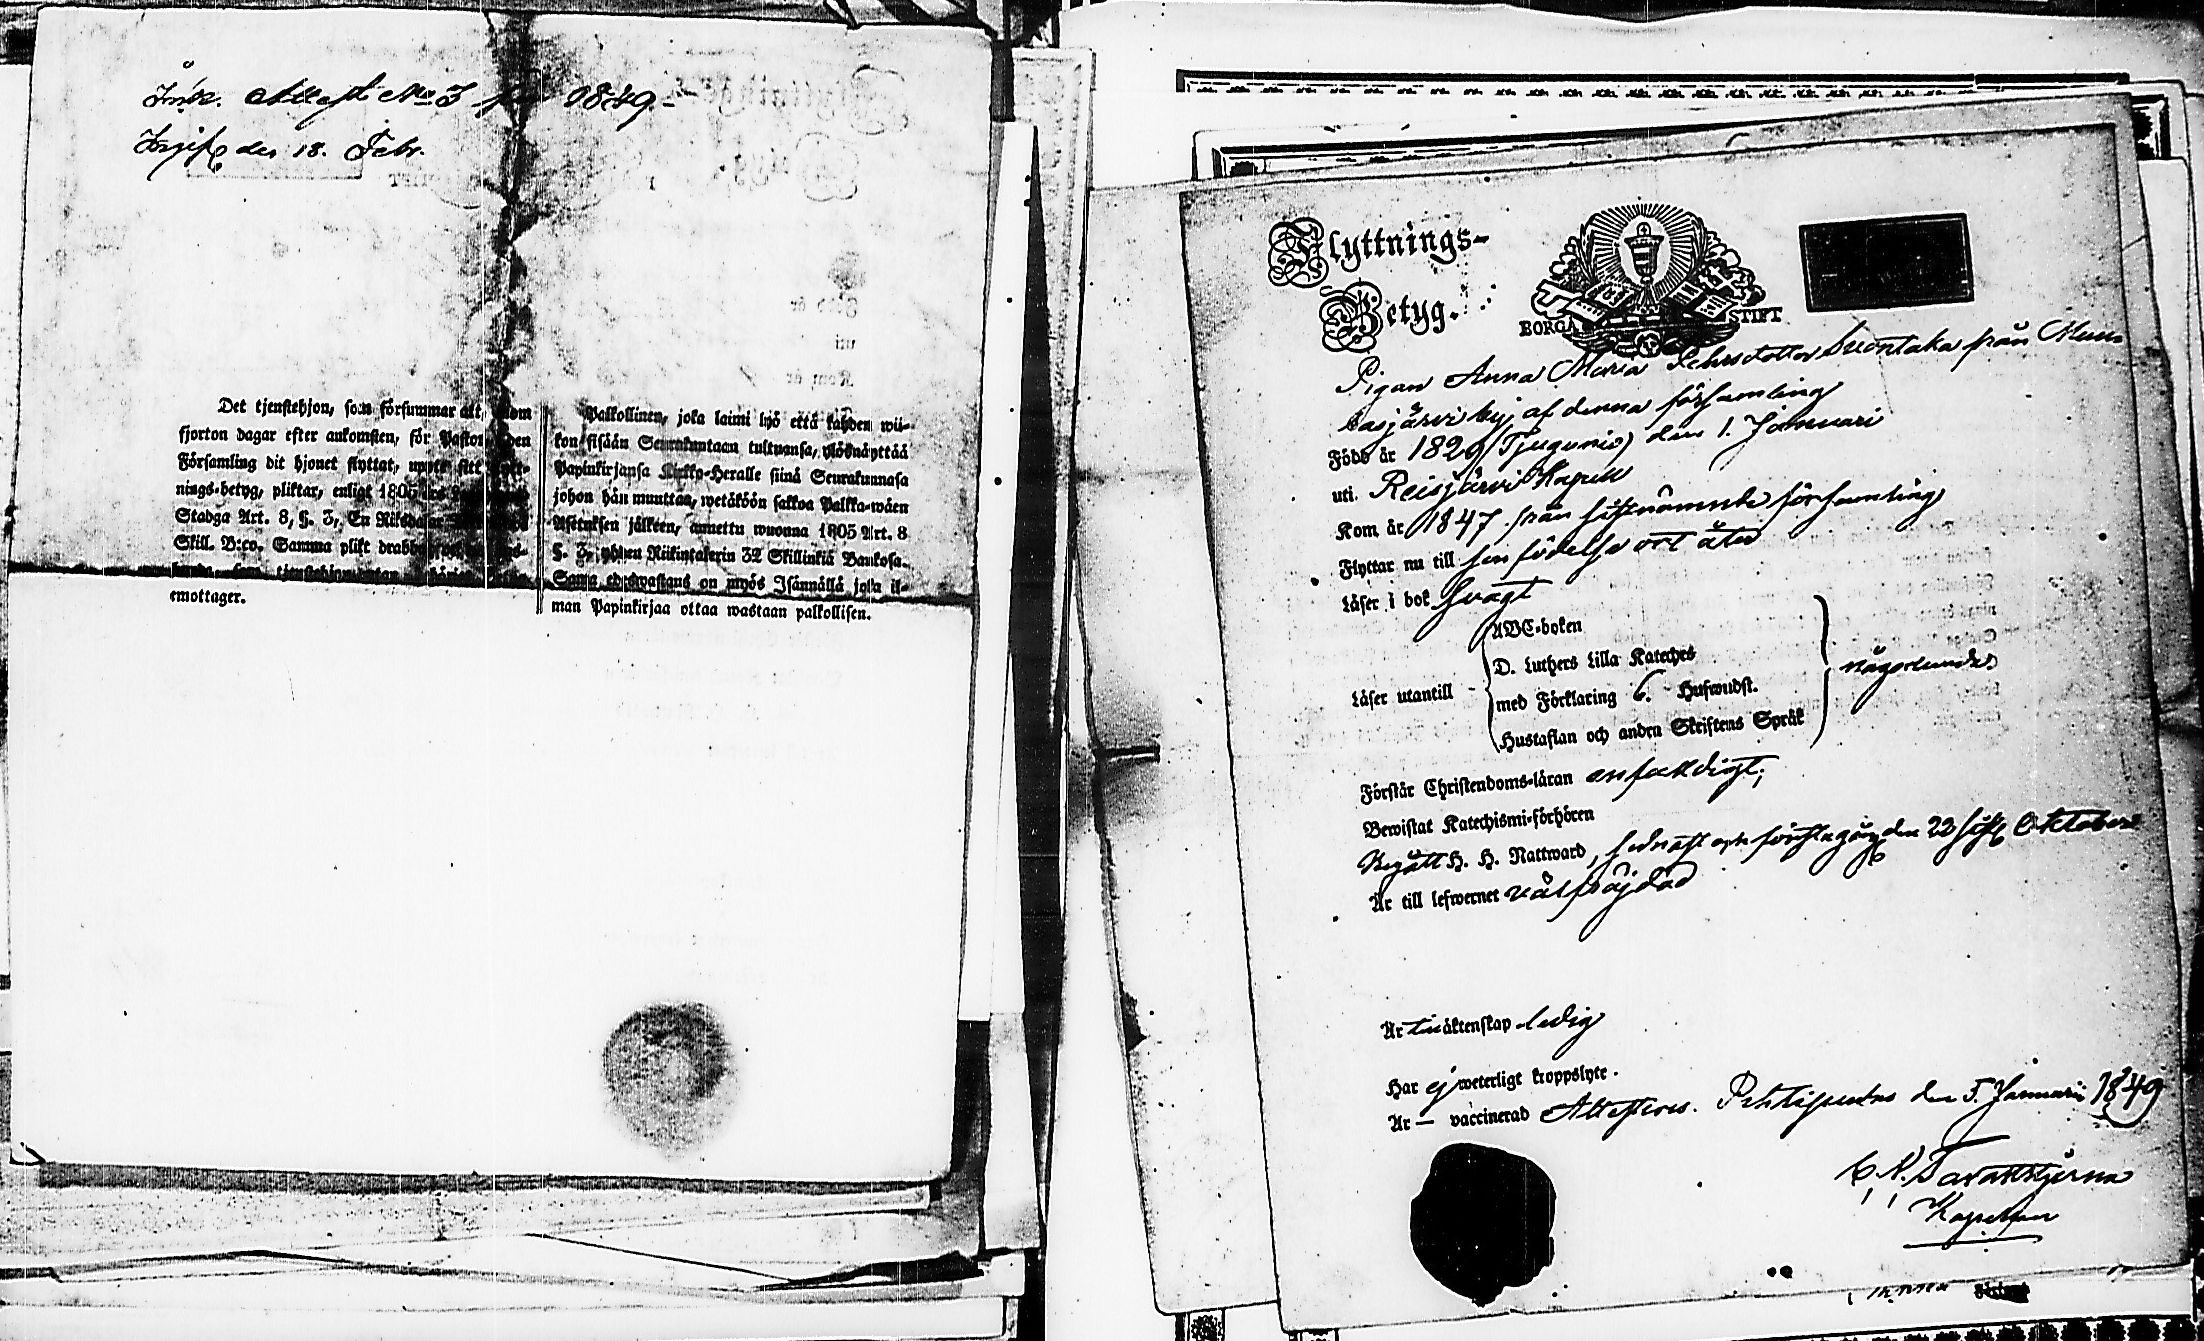 Ink. Attest No 3 för 1849.-
den 18. Febr.
Det tjenstehjon, som försummar att, inom
fjorton dagar efter ankomsten, för Pastor i den
Församling dit hjonet flyttat, uppte sitt flytt-
nings-betyg, pliktar, enligt 1805 års
Stadga Art. 8, §. 3, En Riksdaler
Skill. B:co. Samma plikt drabbar
tjenstehjon utan
emottager.
Palkollinen, joka laimi lyö että kahden wii-
kon sisään Seurakuntaan tultuansa, ylösnäyttää
Papinkirjansa Kirkko-Heralle siinä Seurakunnasa
johon hän muuttaa, wetäköön sakkoa Palkka-wäen
Asetuksen jälkeen, annettu wuonna 1805 Art. 8
§. 3, yhden Riikintalerin 32 Skillinkiä Bankosa.
Sama edeswastaus on myös Isännällä joka il-
man Papinkirjaa ottaa wastaan palkollisen.
Flyttnings-
Betyg.
BORGÅ STIFT
Pigan Anna Maria från
by af denna församling
Född år 1829 (Tjugunio) den 1. Januari
uti. Reisjärvi Kapell
Kom år 1847 från sistnämnde församling
Flyttar nu till sin födelse ort åter
Läser i bok svagt
ABC-boken
D. Luthers Lilla Kateches
Läser utantill
med Förklaring 6. Hufwudst.
någorlunda
Hustaflan och andra Skriftens Språk
Förstår Christendoms-läran enfaldigt;
Bewistat Katechismi-förhören
Begått H. H. Nattward, sednast och första gång den 22 sistl. Oktober
Är till lefwernet välfräjdad
Är till äktenskap ledig
Har ej weterligt kroppslyte.
Är — vaccinerad Attesteras. Pihtipudas den 5. Januarii 1849
C. N. Tavaststjerna
Kapellan